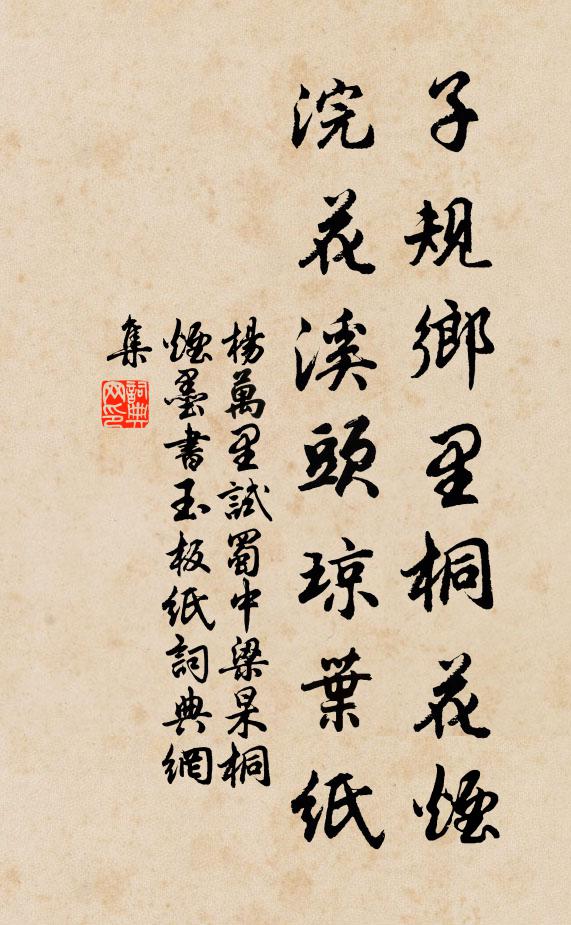 子規鄉里桐花煙
浣花溪頭琼葉紙
楊萬里試蜀中梁杲桐
煙墨書玉板紙詞典網
集
詞典網印